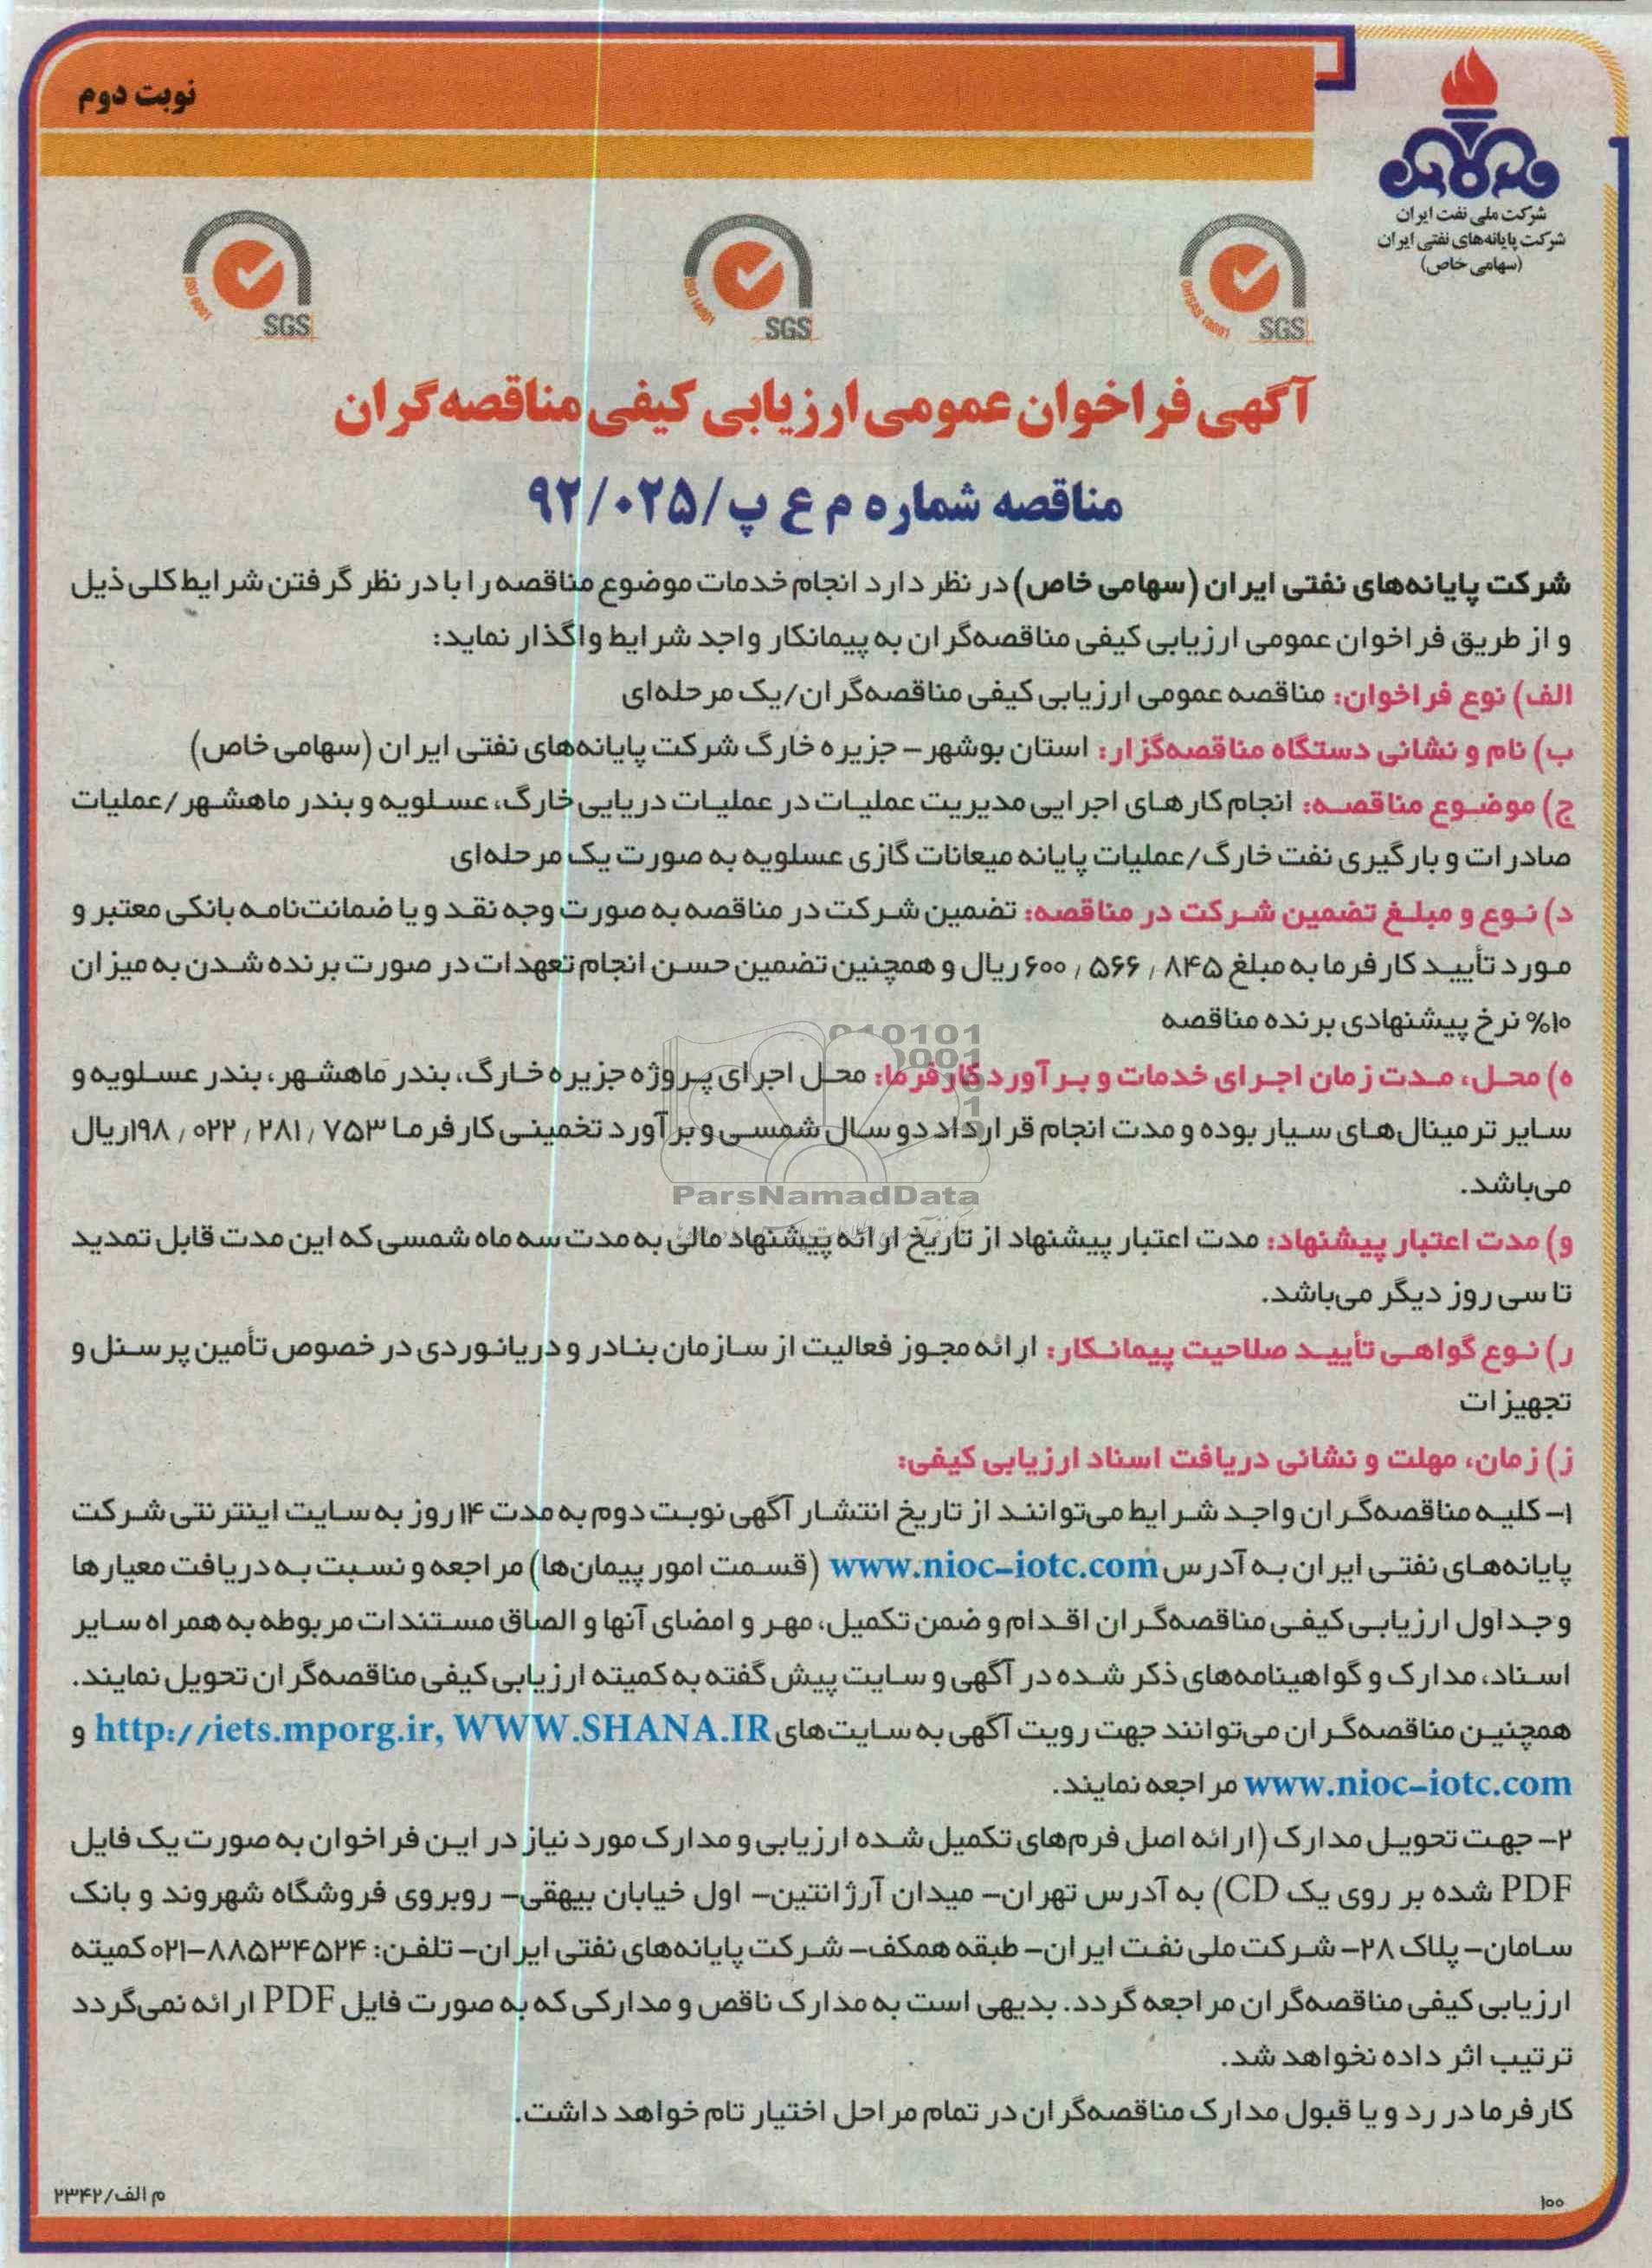 نوبت دوم
شرکت ملی نفت ایران
شرکت پایانه‌های نفتی ایران
(سهامی خاص)
ISO 9001
SGS
ISO 14001
SGS
OHSAS 18001
SGS
آگهی فراخوان عمومی ارزیابی کیفی مناقصه‌گران
مناقصه شماره م ع پ/۹۲/۰۲۵
شرکت پایانه‌های نفتی ایران (سهامی خاص) در نظر دارد انجام خدمات موضوع مناقصه را با در نظر گرفتن شرایط کلی ذیل
و از طریق فراخوان عمومی ارزیابی کیفی مناقصه‌گران به پیمانکار واجد شرایط واگذار نماید:
الف) نوع فراخوان: مناقصه عمومی ارزیابی کیفی مناقصه‌گران/یک مرحله‌ای
ب) نام و نشانی دستگاه مناقصه‌گزار: استان بوشهر- جزیره خارگ شرکت پایانه‌های نفتی ایران (سهامی خاص)
ج) موضوع مناقصه: انجام کارهای اجرایی مدیریت عملیات در عملیات دریایی خارگ، عسلویه و بندر ماهشهر/عملیات
صادرات و بارگیری نفت خارگ/عملیات پایانه میعانات گازی عسلویه به صورت یک مرحله‌ای
د) نوع و مبلغ تضمین شرکت در مناقصه: تضمین شرکت در مناقصه به صورت وجه نقد و یا ضمانت‌نامه بانکی معتبر و
مورد تأیید کارفرما به مبلغ ۶۰۰٫۵۶۶٫۸۴۵ ریال و همچنین تضمین حسن انجام تعهدات در صورت برنده شدن به میزان
۱۰% نرخ پیشنهادی برنده مناقصه
ه) محل، مدت زمان اجرای خدمات و برآورد کارفرما: محل اجرای پروژه جزیره خارگ، بندر ماهشهر، بندر عسلویه و
سایر ترمینال‌های سیار بوده و مدت انجام قرارداد دو سال شمسی و برآورد تخمینی کارفرما ۱۹۸٫۰۲۲٫۲۸۱٫۷۵۳ ریال
می‌باشد.
ParsNamadData
و) مدت اعتبار پیشنهاد: مدت اعتبار پیشنهاد از تاریخ ارائه پیشنهاد مالی به مدت سه ماه شمسی که این مدت قابل تمدید
تا سی روز دیگر می‌باشد.
ر) نوع گواهی تأیید صلاحیت پیمانکار: ارائه مجوز فعالیت از سازمان بنادر و دریانوردی در خصوص تأمین پرسنل و
تجهیزات
ز) زمان، مهلت و نشانی دریافت اسناد ارزیابی کیفی:
۱- کلیه مناقصه‌گران واجد شرایط می‌توانند از تاریخ انتشار آگهی نوبت دوم به مدت ۱۴ روز به سایت اینترنتی شرکت
پایانه‌های نفتی ایران به آدرس www.nioc-iotc.com (قسمت امور پیمان‌ها) مراجعه و نسبت به دریافت معیارها
و جداول ارزیابی کیفی مناقصه‌گران اقدام و ضمن تکمیل، مهر و امضای آنها و الصاق مستندات مربوطه به همراه سایر
اسناد، مدارک و گواهینامه‌های ذکر شده در آگهی و سایت پیش گفته به کمیته ارزیابی کیفی مناقصه‌گران تحویل نمایند.
همچنین مناقصه‌گران می‌توانند جهت رویت آگهی به سایت‌های http://iets.mporg.ir, WWW.SHANA.IR و
www.nioc-iotc.com مراجعه نمایند.
۲- جهت تحویل مدارک (ارائه اصل فرم‌های تکمیل شده ارزیابی و مدارک مورد نیاز در این فراخوان به صورت یک فایل
PDF شده بر روی یک CD) به آدرس تهران- میدان آرژانتین- اول خیابان بیهقی- روبروی فروشگاه شهروند و بانک
سامان- پلاک ۲۸- شرکت ملی نفت ایران- طبقه همکف- شرکت پایانه‌های نفتی ایران- تلفن: ۰۲۱-۸۸۵۳۴۵۲۴ کمیته
ارزیابی کیفی مناقصه‌گران مراجعه گردد. بدیهی است به مدارک ناقص و مدارکی که به صورت فایل PDF ارائه نمی‌گردد
ترتیب اثر داده نخواهد شد.
کارفرما در رد و یا قبول مدارک مناقصه‌گران در تمام مراحل اختیار تام خواهد داشت.
۱۰۰
م الف/۲۳۴۲